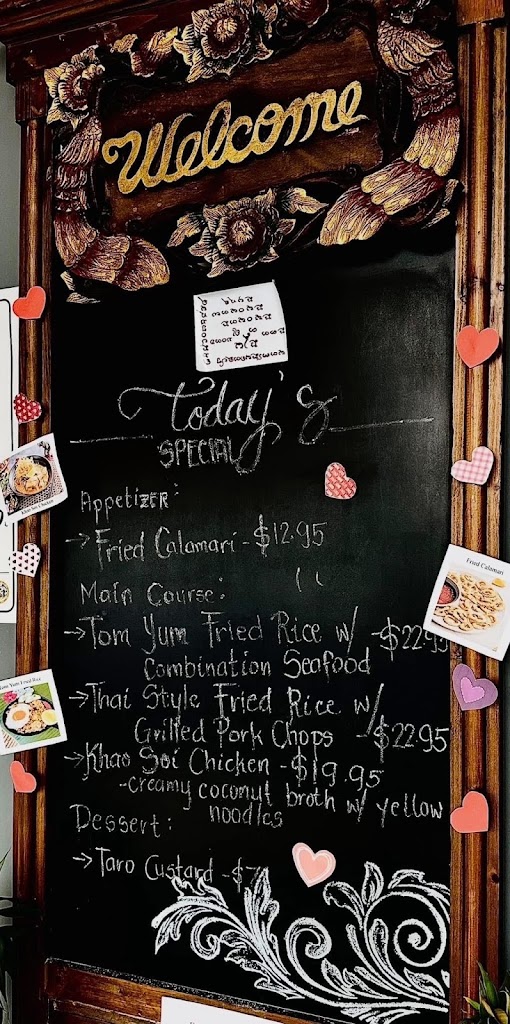 Welcome
Today's
SPECIAL
Appetizer:
→ Fried Calamari - $12.95
Main Course:
→ Tom Yum Fried Rice w/ - $22.95
Combination Seafood
→ Thai Style Fried Rice w/
Grilled Pork Chops - $22.95
→ Khao Soi Chicken - $19.95
- creamy coconut broth w/ yellow
noodles
Dessert:
→ Taro Custard - $7
Khao Soi Chicken
Fried Calamari
Tom Yum Fried Rice